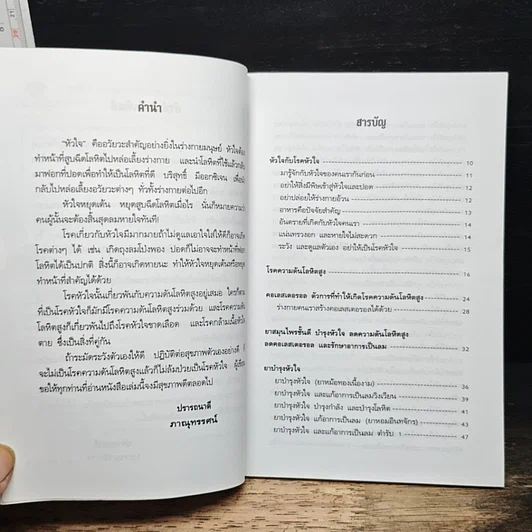 คำนำ
"หัวใจ" คืออวัยวะสำคัญอย่างยิ่งในร่างกายมนุษย์ หัวใจ
ทำหน้าที่สูบฉีดโลหิตไปหล่อเลี้ยงร่างกาย และนำโลหิตที่ใช้แล้ว
มาฟอกที่ปอดเพื่อทำให้เป็นโลหิตที่ดี บริสุทธิ์ มีออกซิเจน
กลับไปหล่อเลี้ยงอวัยวะต่างๆ ทั่วทั้งร่างกายต่อไปอีก
หัวใจหยุดเต้น หยุดสูบฉีดโลหิตเมื่อไร นั่นก็หมายความ
คนผู้นั้นจะต้องสิ้นสุดลมหายใจทันที!
โรคเกี่ยวกับหัวใจมีมากมายถ้าไม่ดูแลเอาใจใส่ให้ดีก็อาจ
โรคต่างๆ ได้ เช่น เกิดถุงลมโป่งพอง ปอดก็ไม่อาจจะทำหน้าที่
โลหิตได้เป็นปกติ สิ่งนี้ก็อาจเกิดหายนะ ทำให้หัวใจหยุดเต้นหรือ
ทำหน้าที่สำคัญได้ด้วย
โรคหัวใจนั้นเกี่ยวพันกับความดันโลหิตสูงอยู่เสมอ ใคร
เป็นโรคหัวใจก็มักมีโรคความดันโลหิตสูงร่วมด้วย และโรคความ
โลหิตสูงก็เกี่ยวพันไปถึงโรคหัวใจขาดเลือด และโรคกล้ามเนื้อ
ตาย ซึ่งเป็นสิ่งที่คู่กัน
ถ้าระมัดระวังตัวเองให้ดี ปฏิบัติต่อสุขภาพตัวเองอย่างดี
จะไม่เป็นโรคความดันโลหิตสูงแล้วก็ไม่ล้มป่วยเป็นโรคหัวใจ
ขอให้ทุกท่านที่อ่านหนังสือเล่มนี้จงมีสุขภาพดีตลอดไป
ปรารถนาดี
ภาณุทรรศน์
สารบัญ
หัวใจกับโรคหัวใจ 10
- มารู้จักกับหัวใจของคนเรากันก่อน 11
- อย่าให้สิ่งมีพิษเข้าสู่หัวใจและปอด 11
- อย่าปล่อยให้ร่างกายอ้วน 12
- อาหารคือปัจจัยสำคัญ 13
- อันตรายที่เกิดกับหัวใจคนเรา 13
- แน่นทรวงอก และหายใจไม่สะดวก 14
- ระวัง และดูแลตัวเอง อย่าให้เป็นโรคหัวใจ 15
โรคความดันโลหิตสูง 16
คอเลสเตอรอล ตัวการที่ทำให้เกิดโรคความดันโลหิตสูง 24
- ร่างกายคนเราสร้างคอเลสเตอรอลได้ด้วย 28
ยาสมุนไพรชั้นดี บำรุงหัวใจ ลดความดันโลหิตสูง
ลดคอเลสเตอรอล และรักษาอาการเป็นลม 32
ยาบำรุงหัวใจ
ยาบำรุงหัวใจ (ยาหม้อทองเนื้องาม) 36
ยาบำรุงหัวใจ และแก้อาการเป็นลมวิงเวียน 39
ยาบำรุงหัวใจ บำรุงกำลัง และบำรุงโลหิต 41
ยาบำรุงหัวใจ แก้อาการเป็นลม (ยาหอมอินทจักร) 43
ยาบำรุงหัวใจ และแก้อาการเป็นลม ตำรับ 1 47